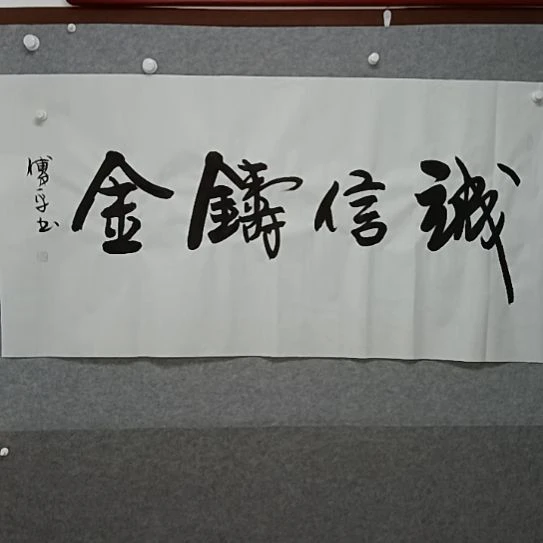 誠信鑄金